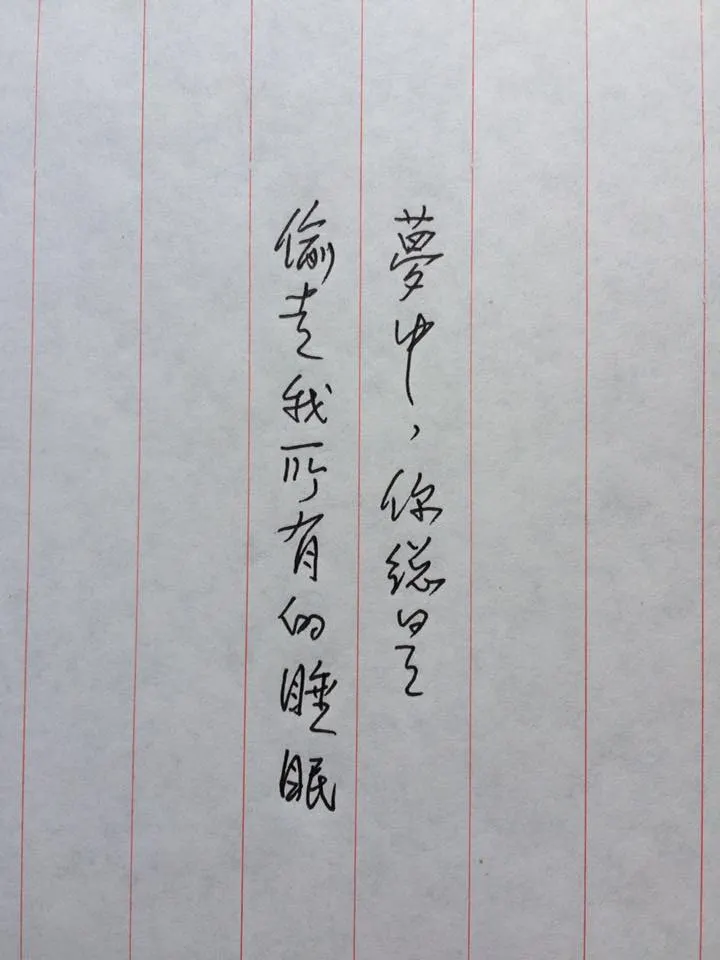 夢中，你總是
偷走我所有的睡眠